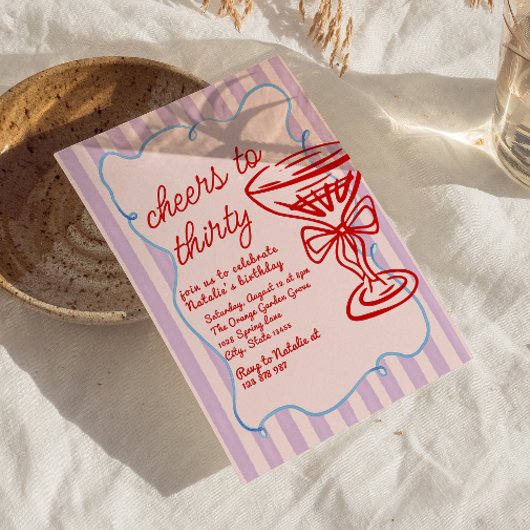 cheers to
thirty
join us to celebrate
Natalie's birthday
Saturday, August 12 at 8pm
The Orange Garden Grove
1028 Spring lane
City, State 13455
Rsvp to Natalie at
123 878 987